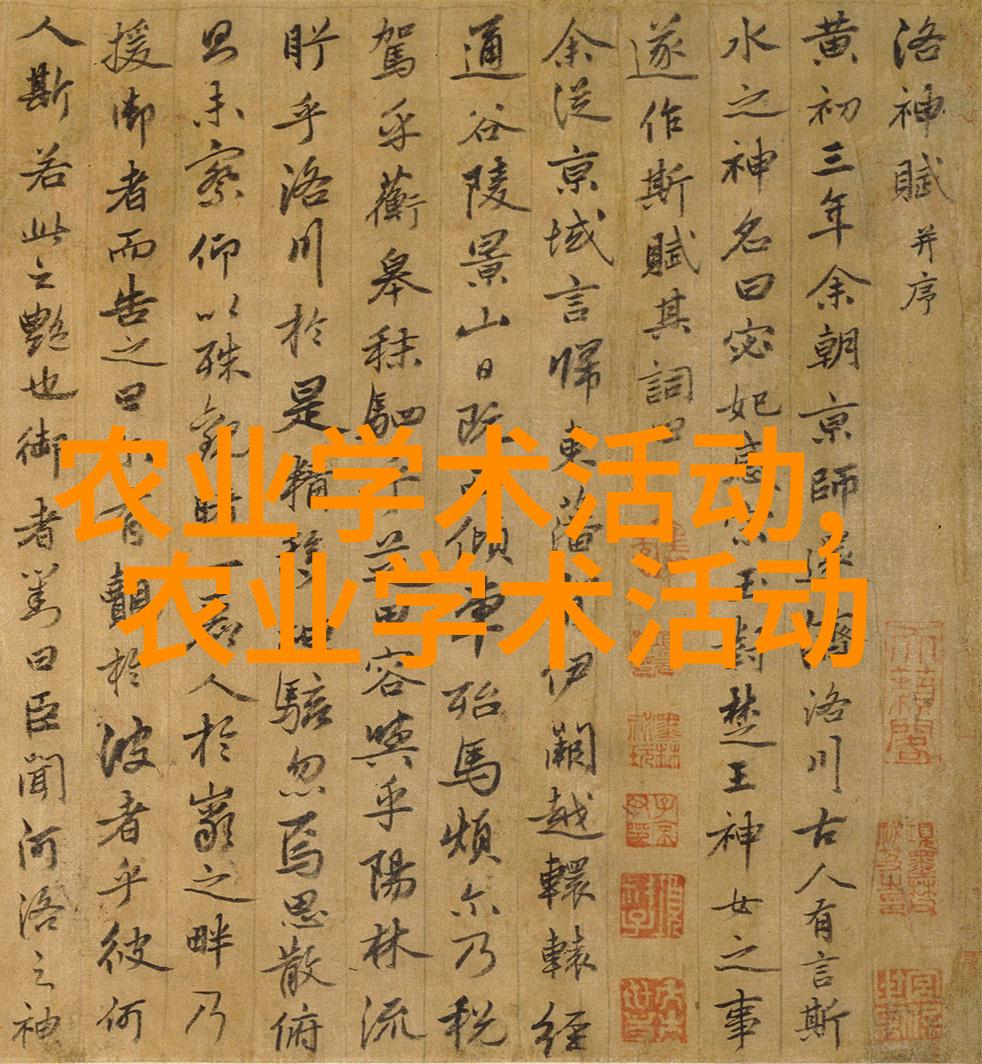 洛神賦 并序
黄初三年余朝京師還濟洛川古人有言斯
水之神名曰宓妃感宋玉對楚王神女之事
遂作斯賦其詞曰
余從京域言歸東藩背伊闕越轘轅經
通谷陵景山日既西傾車殆馬煩尒乃税
駕乎蘅皋秣駟乎芝田容與乎陽林流
眄乎洛川於是精移神駭忽焉思散俯
則未察仰以殊觀睹一麗人於巖之畔乃
援御者而告之曰尒有覿於彼者乎彼何
人斯若此之艷也御者對曰臣聞河洛之神
农业学术活动,
农业学术活动